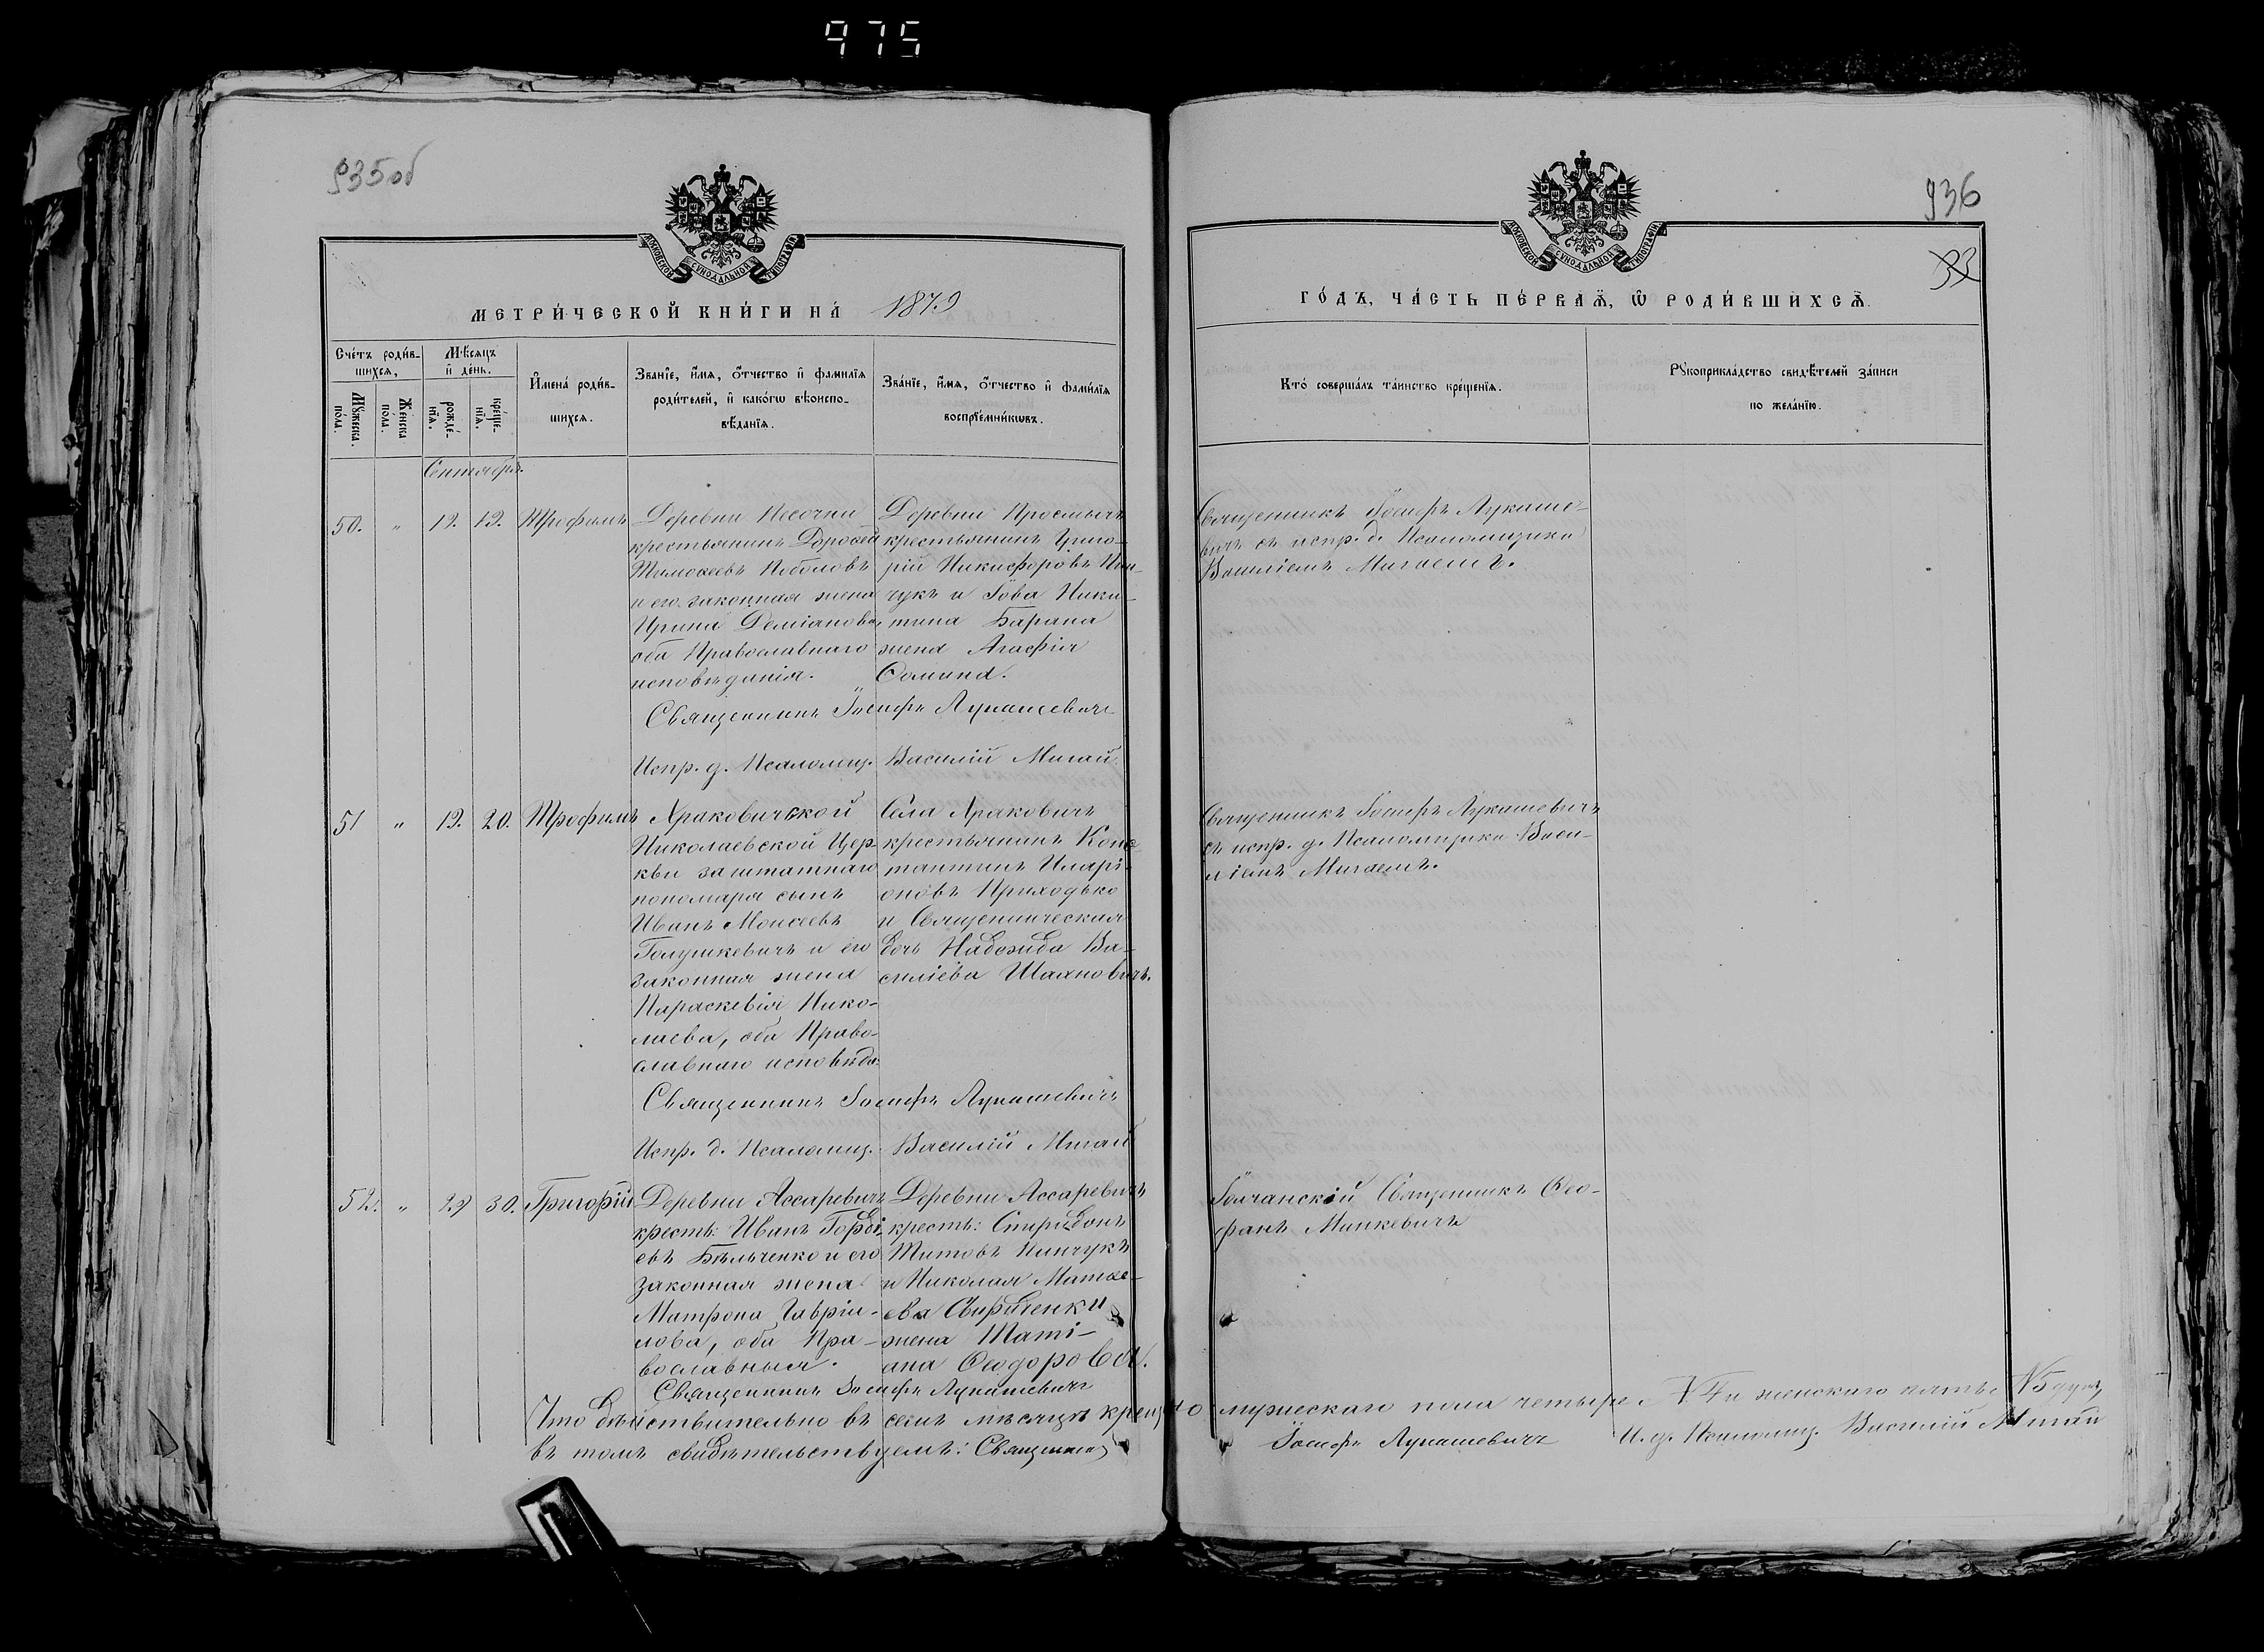 975
935об
МОСКОВСКОЙ СУНОДАЛЬНОЙ ТИПОГРАФІИ
МЕТРИ́ЧЕСКОЙ КНИ́ГИ НА́ 1879
Сче́тъ роди́в-
шихся,
Мꙋ́жеска по́ла.
Же́нска по́ла.
Мѣ́сяцъ
и҆ де́нь.
рожде́-
нїя.
креще́-
нїя.
И҆мена̀ роди́в-
шихся.
Зва́нїе, и҆́мя, ѻ҆́тчество и҆ фами́лїя
роди́телей, и҆ како́гѡ вѣ́роиспо-
вѣ́данїя.
Зва́нїе, и҆́мя, ѻ҆́тчество и҆ фами́лїя
воспрїе́мникѡвъ.
Сентября.
50. " 12. 19. Трофимъ
Деревни Песочни
крестьянинъ Дорофей
Тимофеевъ Поболовъ
и его законная жена
Ирина Деміанова,
оба Православнаго
исповѣданія.
Деревни
крестьянинъ Григо-
рій Никифоровъ Пин-
чукъ и Іова Ники-
тина Барана
жена Агафія
Фомина.
Священникъ Іосифъ Лукашевичъ
Испр. д. Псаломщ. Василій Мигай
51 " 19. 20. Трофимъ
Храковичской
Николаевской Цер-
кви заштатнаго
пономаря сынъ
Иванъ Моисеевъ
Голушкевичъ и его
законная жена
Параскевія Нико-
лаева, оба Право-
славнаго исповѣда:
Села Храковичъ
крестьянинъ Конс-
тантинъ Иларі-
оновъ Приходько
и Священническая
дочь Надежда Ва-
силіева Шахновичъ.
Священникъ Іосифъ Лукашевичъ
Испр. д. Псаломщ. Василій Мигай
52. " 29 30. Григорій
Деревни Ассаревичъ
кресть: Иванъ Горді-
евъ Бѣльченко и его
законная жена
Матрона Гавріи-
лова, оба Пра-
вославныя.
Деревни Ассаревичъ
кресть: Спиридонъ
Титовъ Пинчукъ
и Николая Матѳе-
ева Свириденки
жена Таті-
ана Ѳеодорова.
Священникъ Іосифъ Лукашевичъ
Что дѣйствительно въ семъ мѣсяцѣ крещено мужескаго пола четыре № 4 и женскаго пять № 5 душъ,
въ томъ свидѣтельствуемъ: Священникъ Іосифъ Лукашевичъ И. д. Псаломщ. Василій Мигай
936
33
МОСКОВСКОЙ СУНОДАЛЬНОЙ ТИПОГРАФІИ
ГО́ДЪ, ЧА́СТЬ ПЕ́РВАЯ, Ѽ РОДИ́ВШИХСЯ.
Кто̀ соверша́лъ та́инство креще́нїя.
Рꙋкоприкла́дство свидѣ́телей за́писи
по жела́нїю.
Священникъ Іосифъ Лукаше-
вичъ съ испр. д. Псаломщика
Василіемъ Мигаемъ.
Священникъ Іосифъ Лукашевичъ
съ испр. д. Псаломщика Васи-
ліемъ Мигаемъ.
Священникъ Ѳео-
фанъ Минкевичъ